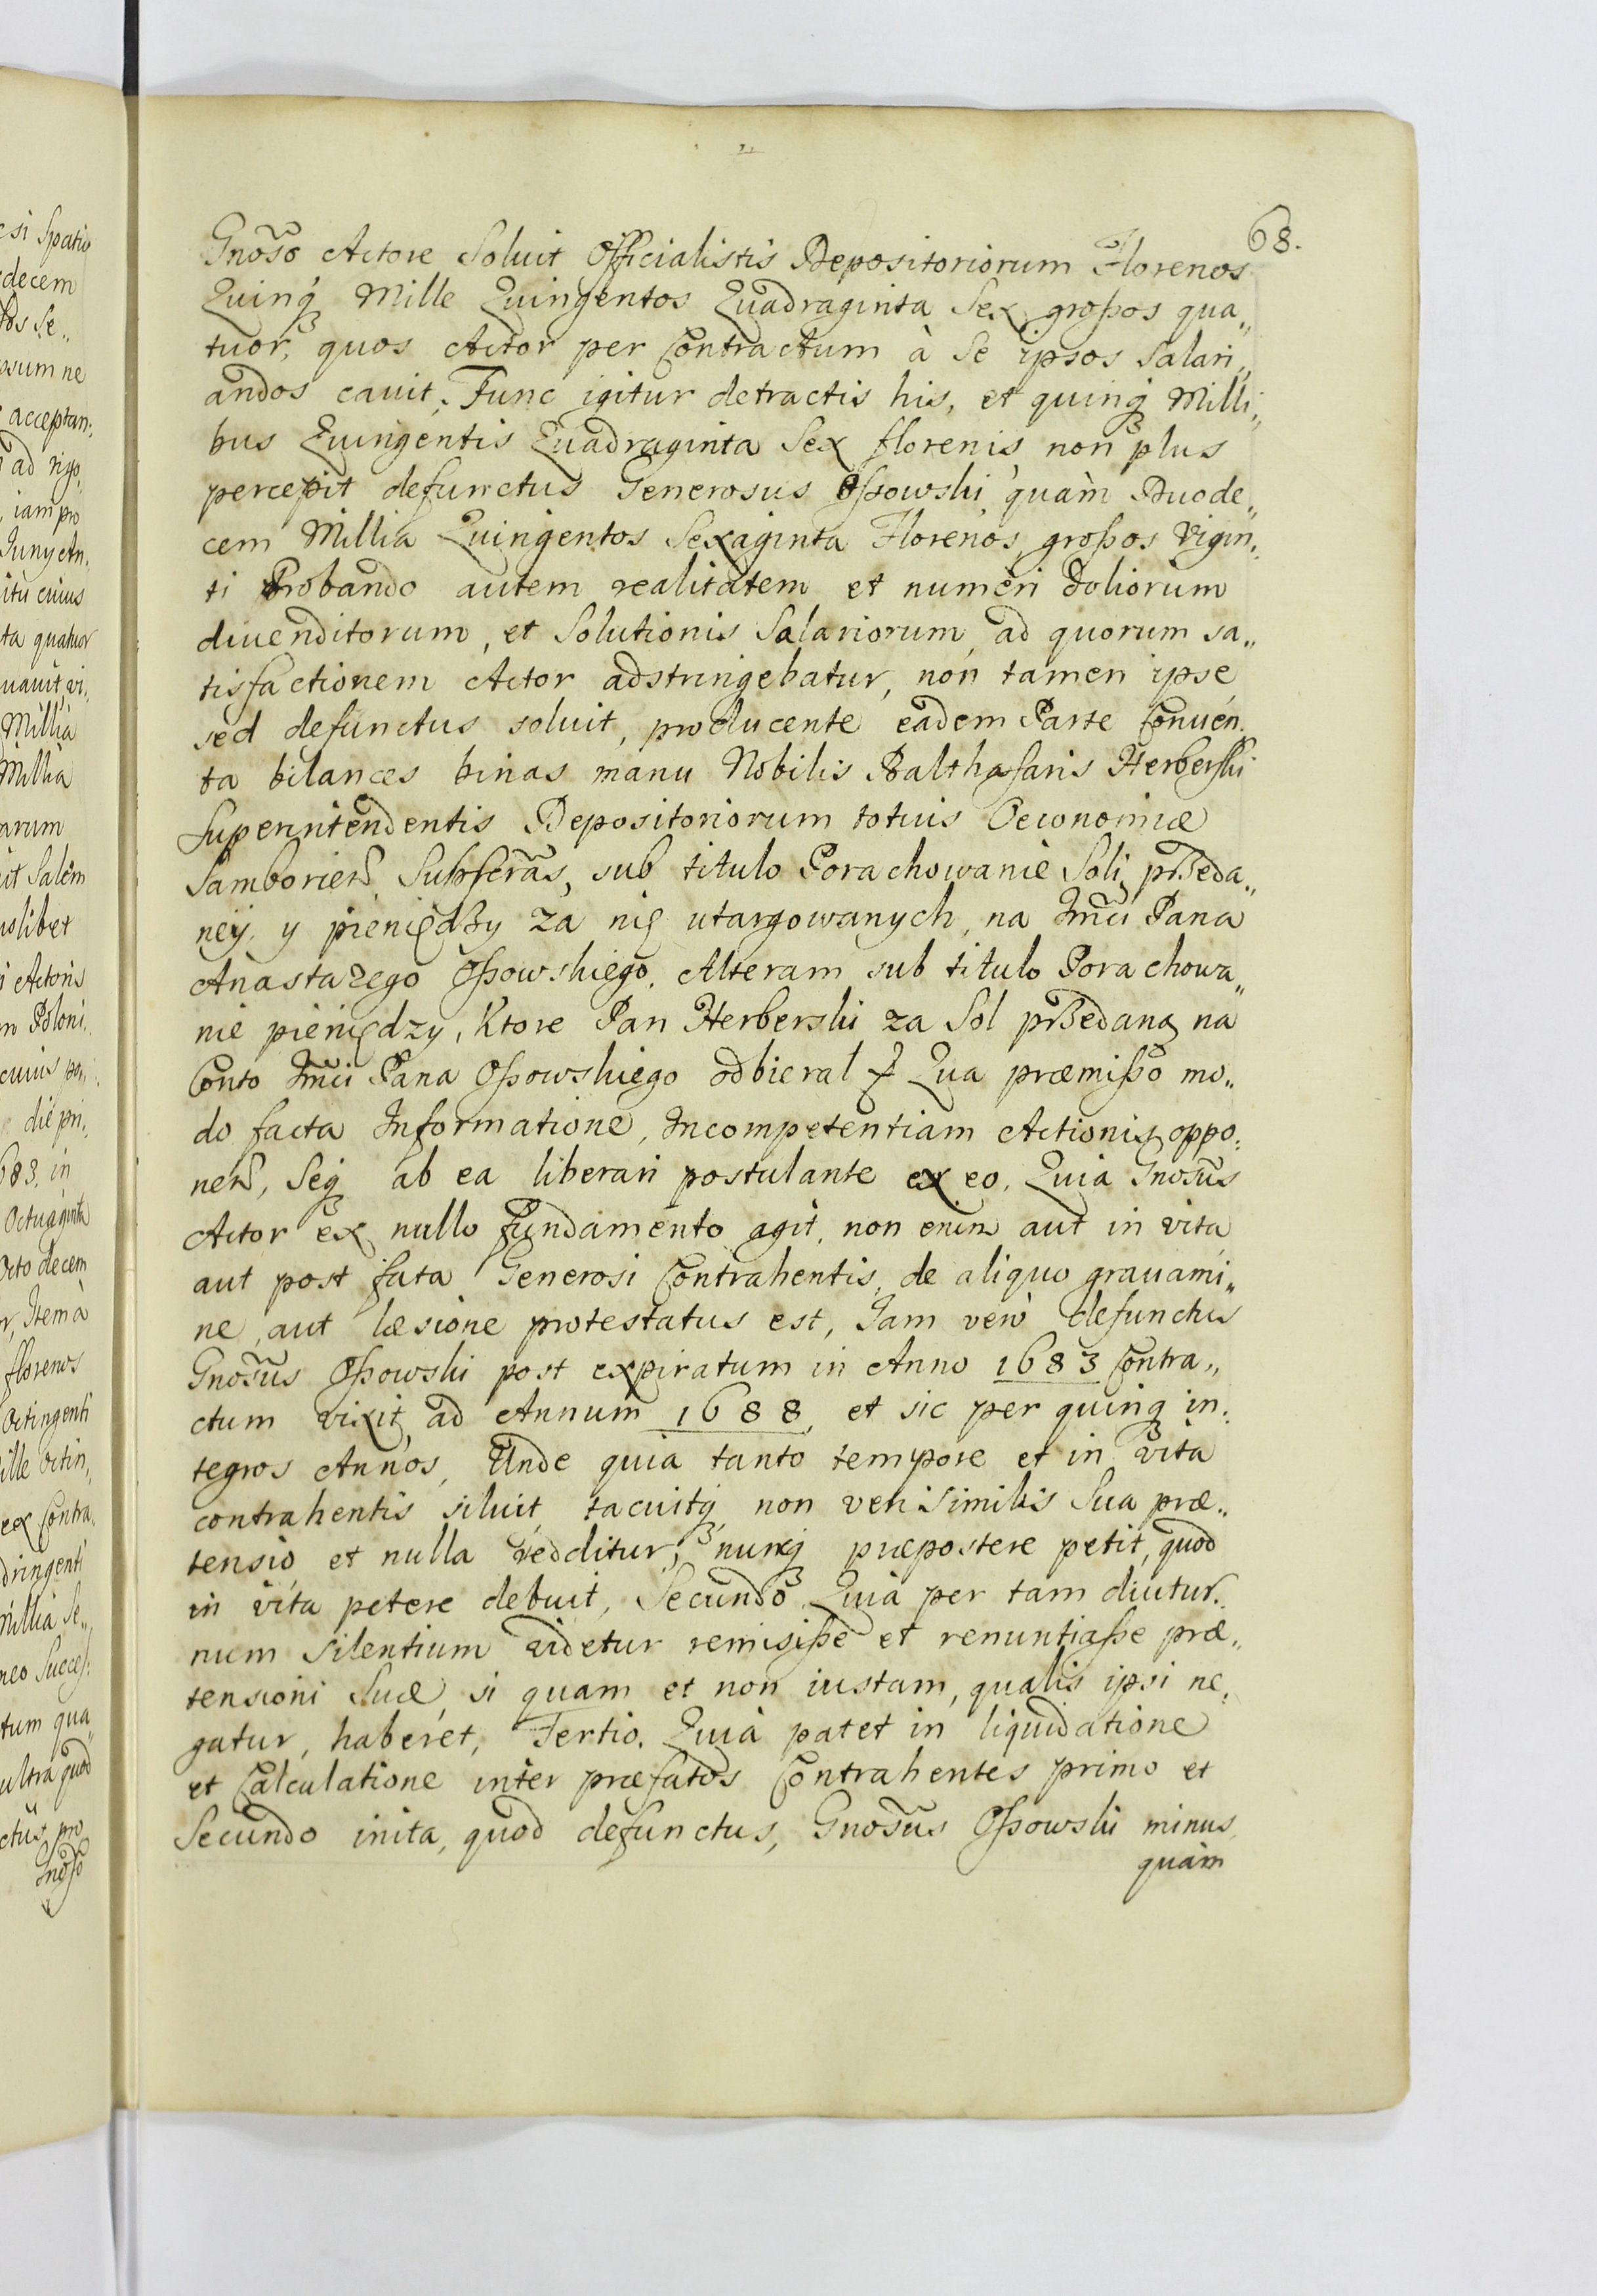 68.
Gnõso Actore Soluit Officialistis Depositoriorum Florenos
Quinq̃ Mille Quingentos Quadraginta Sex, großos qua„
tuor, quos Actor per Contractum à Se ipsos salari„
andos cauit. Tunc igitur detractis his, et quinq̃ Milli„
bus Quingentis Quadraginta Sex florenis non plus
percepit defunctus Generosus Oßowski, quàm Duode„
cem Millia Quingentos Sexaginta Florenos, großos Vigin„
ti Probando autem realitatem et numeri doliorum
diuenditorum, et Solutionis Salariorum, ad quorum sa„
tisfactionem Actor adstringebatur, non tamen ipse
sed defunctus soluit, producente eadem Parte Conuen„
ta bilances binas manu Nobilis Balthasaris Herberski
Superintendentis Depositoriorum totius Oeconomiæ
Samborien̄ Subscr̃as, sub titulo Porachowanie Soli przeda„
neÿ, y pieniędzy za nię utargowanych, na Jm̃ci Pana
Anastazego Oßowskiego. Alteram sub titulo Porachowa„
nie pieniędzy, Ktore Pan Herberski za Sol przedaną na
Conto Jm̃ci Pana Oßowskiego odbieral Qua præmißo mo„
do facta Informatione, Incompetentiam Actionis oppo„
nen̄, Seq̃ ab ea liberari postulante ex eo. Quia Gnõsus
Actor ex nullo fundamento agit, non enim aut in vita
aut post fata Generosi Contrahentis, de aliquo grauami„
ne, aut læsione protestatus est, Jam verò defunctus
Gnõsus Oßowski post expiratum in Anno 1683 Contra„
ctum vixit ad Annum 1688, et sic per quinq̃ in„
tegros Annos, Unde quia tanto tempore et in vita
contrahentis siluit, tacuitq̃, non veri similis Sua præ„
tensio, et nulla redditur, nunq̃ præpostere petit, quod
in vita petere debuit, Secundò Quia per tam diutur„
num silentium videtur remisiße et renuntiaße præ„
tensioni Suæ si quam et non iustam, qualis ipsi ne„
gatur, haberet, Tertio. Quia patet in liquidatione
et Calculatione inter præfatos Contrahentes primo et
Secundo inita, quod defunctus, Gnõsus Oßowski minus
quàm